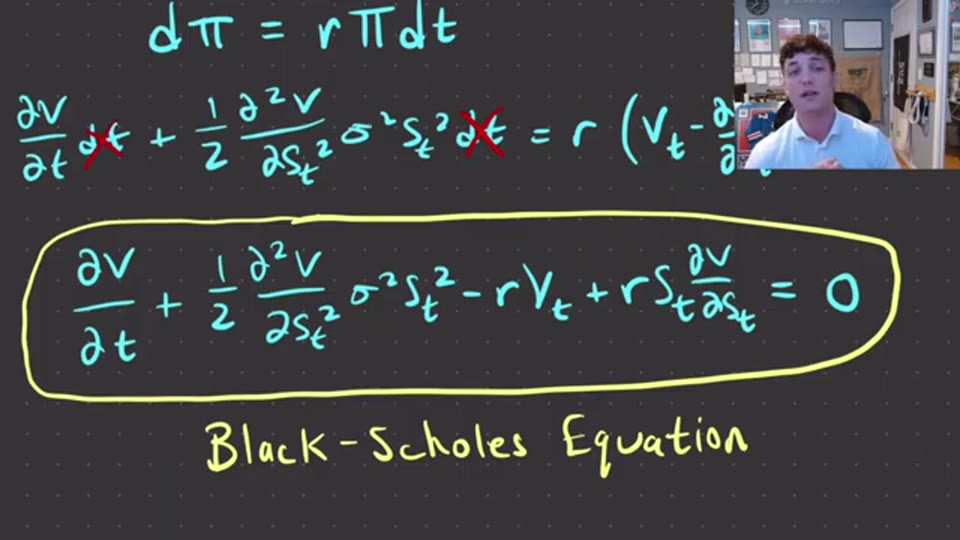 dπ = rπdt
∂V/∂t dt + 1/2 ∂²V/∂Sₜ² σ²Sₜ² dt = r (Vₜ - ∂
∂V/∂t + 1/2 ∂²V/∂Sₜ² σ²Sₜ² - rVₜ + rSₜ ∂V/∂Sₜ = 0
Black-Scholes Equation